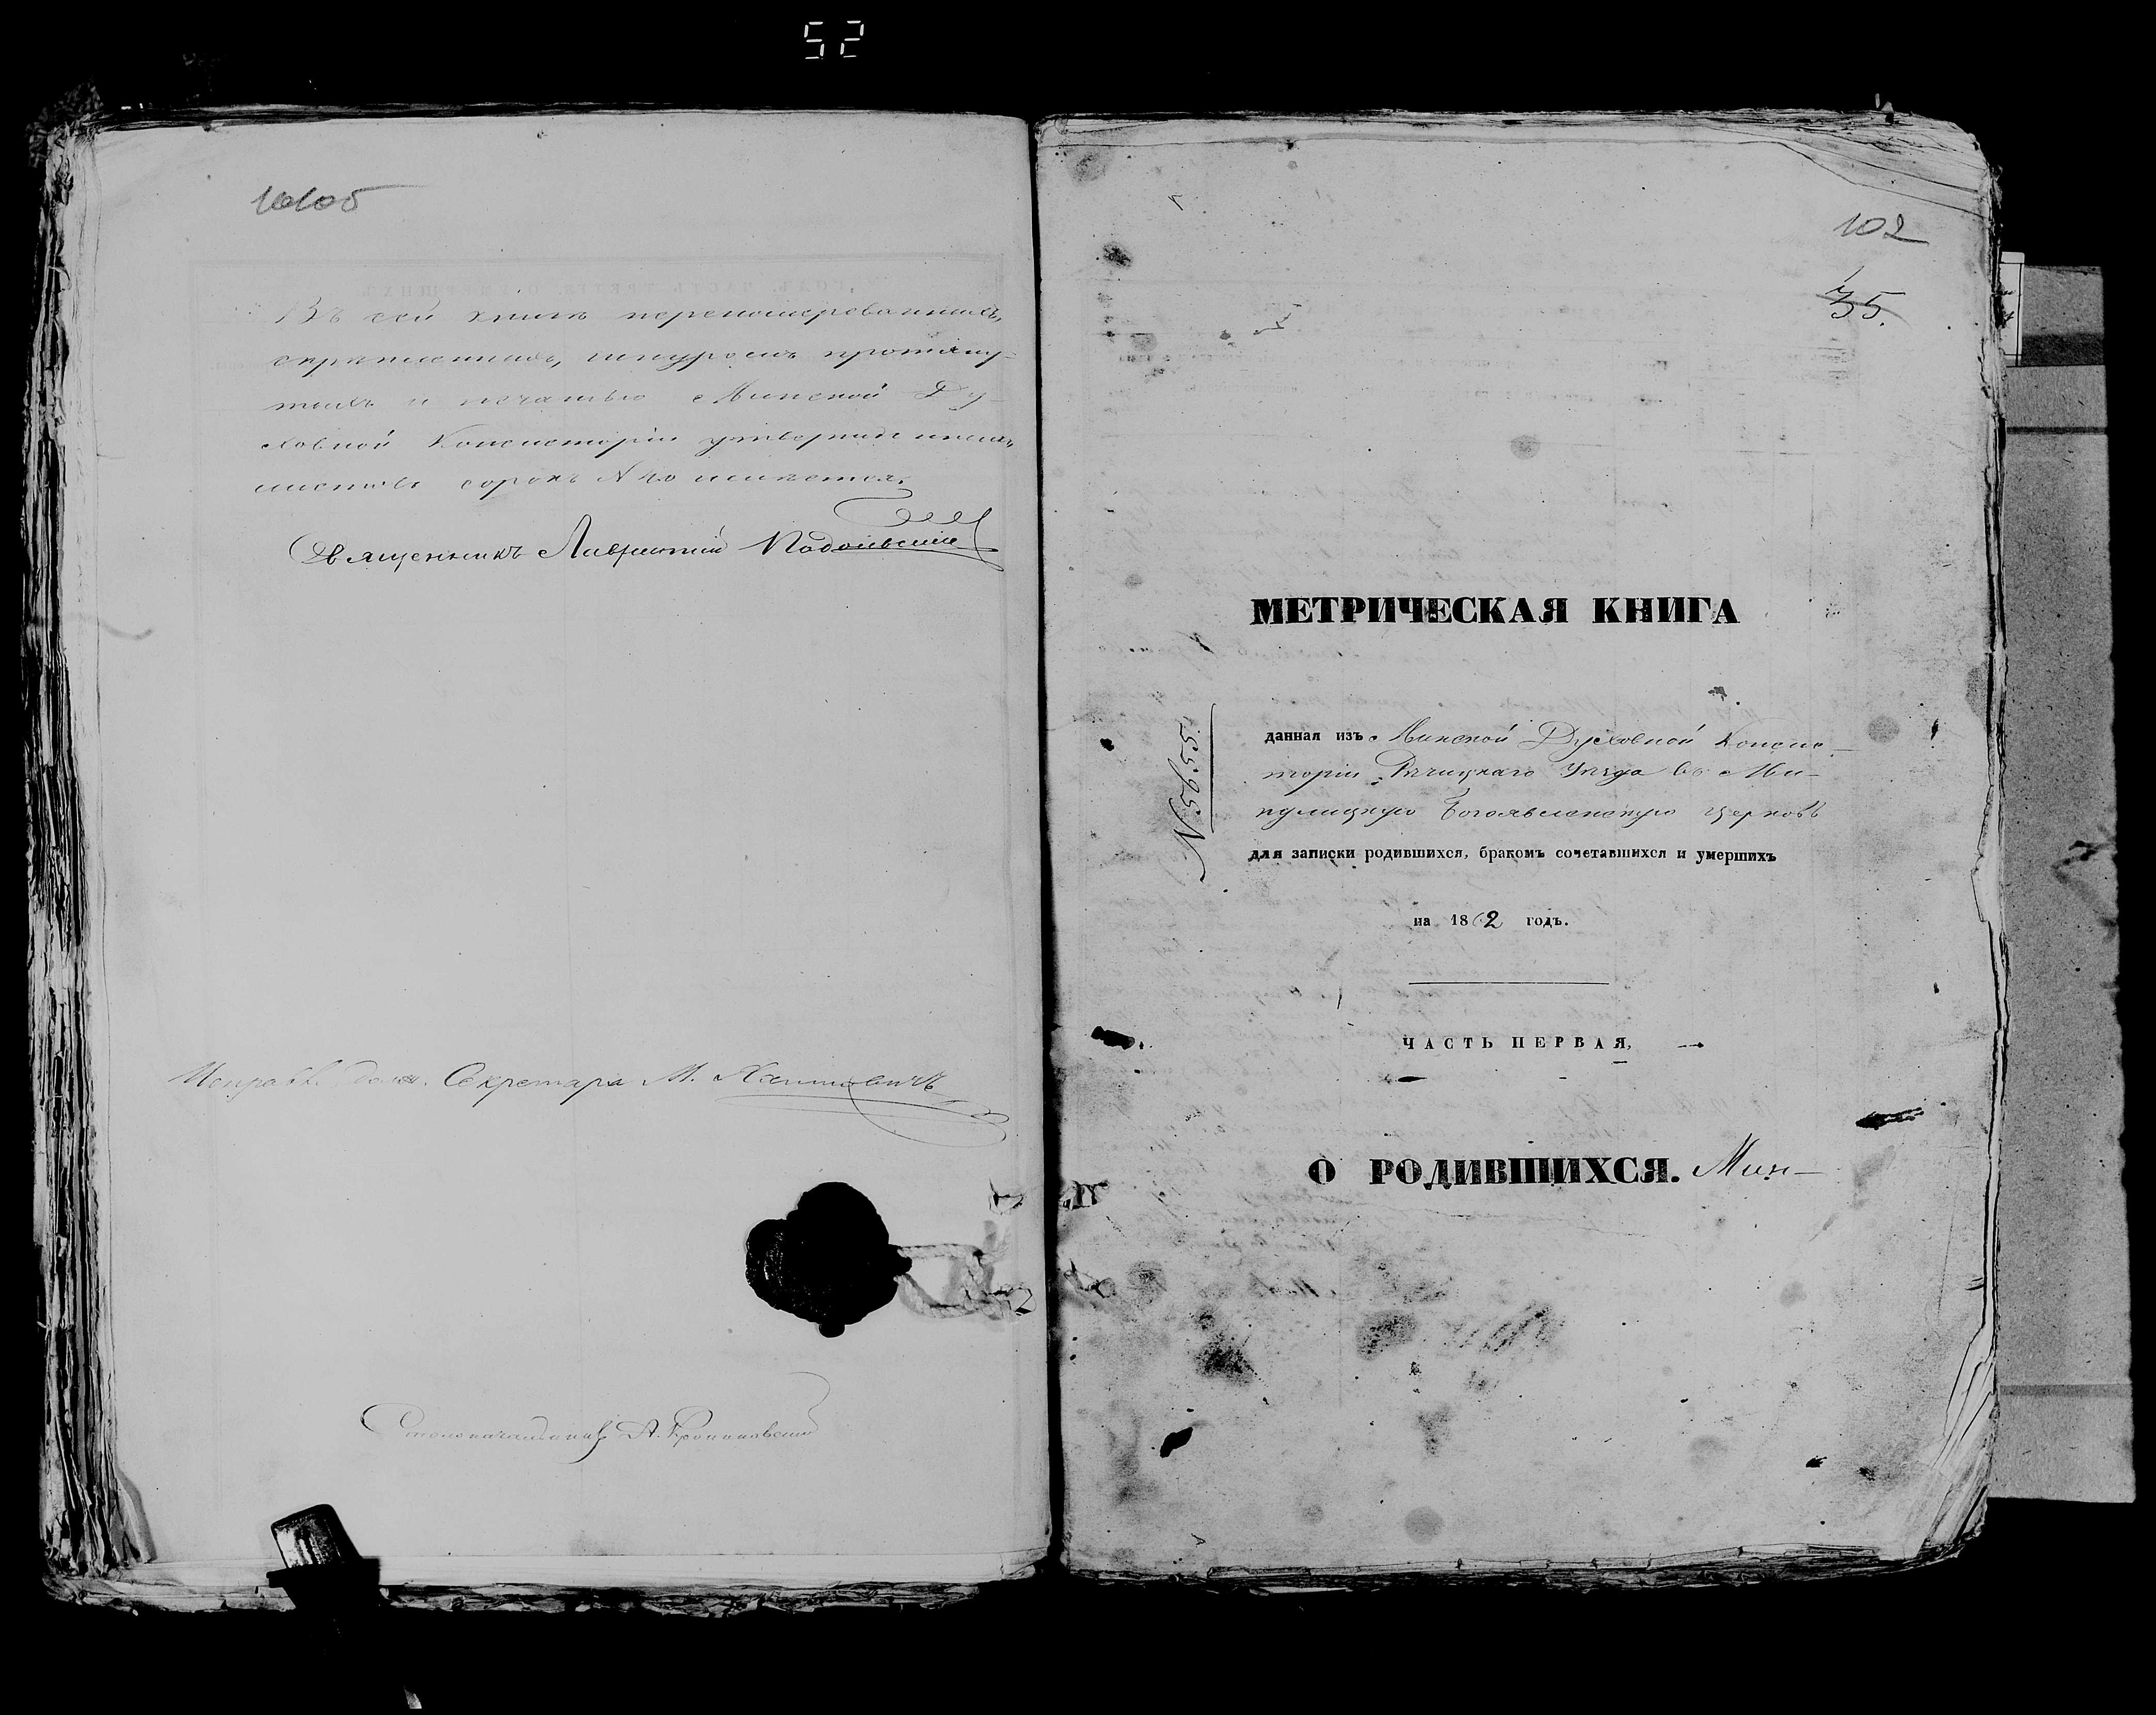 52
10105
Въ сей книгѣ перенумерованныхъ,
скрѣпленныхъ, шнуромъ протяну-
тыхъ и печатью Минской Ду-
ховной Консисторіи утвержденныхъ
листовъ сорокъ N 40 имѣется.
Священникъ Лаврентій
Исправл. долж. Секретаря М.
Столоначальникъ А.
102
35.
МЕТРИЧЕСКАЯ КНИГА
N 5655.
данная изъ Минской Духовной Консис-
торіи Рѣчицкаго Уѣзда въ Ми-
кулицкую Богоявленскую церковь
для записки родившихся, бракомъ сочетавшихся и умершихъ
на 1862 годъ.
ЧАСТЬ ПЕРВАЯ,
О РОДИВШИХСЯ. Мин-